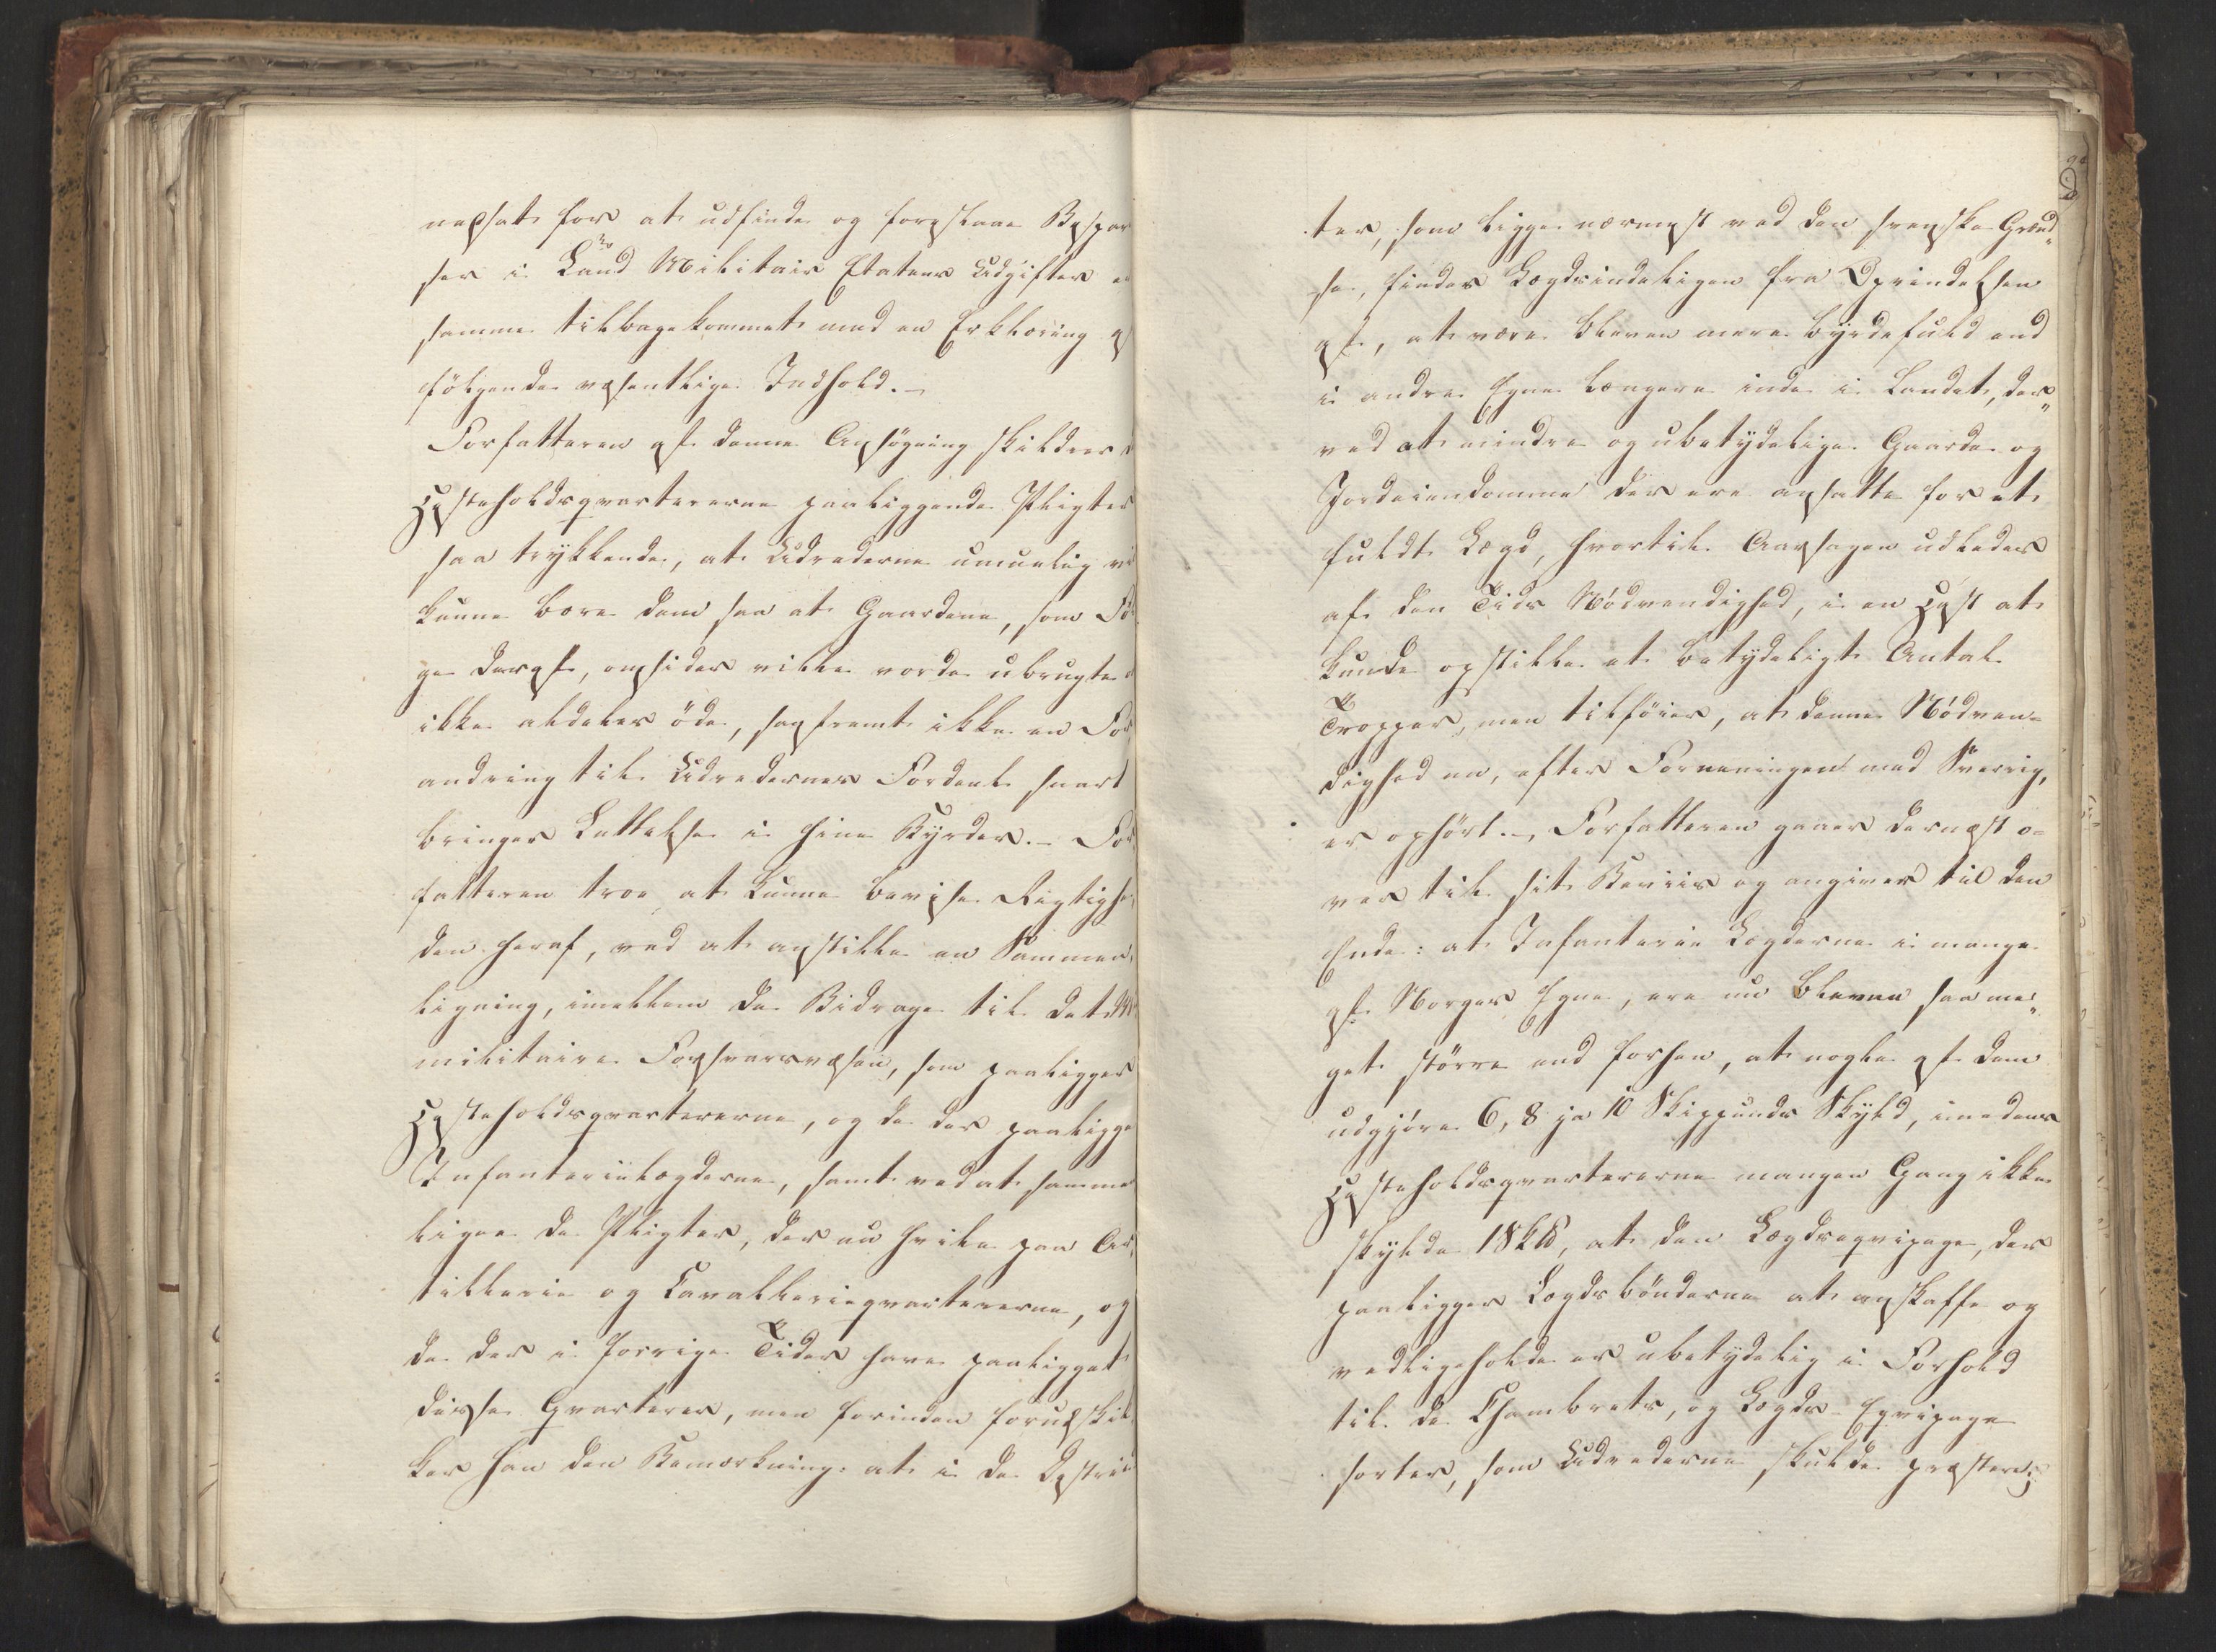 nedsatt for at udfinde og foreslaae Bespar
ser i Land Militair Etatens Udgifter er
samme tilbagekommet med en Erklæring af
følgende væsentlige Indhold. –
Forfatteren af denne Ansøgning skildrer d
Hesteholdsqvartererne paaliggende Pligter
saa trykkende, at Udrederne umuelig vil
kunne bære dem saa at Gaardene, som Føl
ge deraf, omsider ville vorde ubrugte o
ikke aldeles øde, saafremt ikke en For
andring til Udredernes Fordeel snart
bringer Lettelse i hine Byrder. – For
fatteren troe, at kunne bevise Rigtighe
den heraf, ved at anstille en Sammen
ligning, imellem de Bidrage til det
militaire Forsvarsvæsen, som paaligger
Hesteholdsqvartererne, og de der paaligge
Infanterielægderne, samt ved at samme
ligne de Pligter, der nu hvile paa Ar
tillerie og Cavalleriqvartererne, og
de der i forrige Tider have paaligget
disse Qvarterer, men forinden forudskik
ker han den Bemærkning: at i de Distric
ter, som ligge nærmest ved den svenske Grænd„
se, findes Lægdsindeligen fra Oprindelsen
af, at være bleven mere byrdefuld end
i andre Egne længere inde i Landet, der„
ved at mindre og ubetydelige Gaarde og
Jordeiendomme der ere ansatte for et
fuldt Lægd, hvortil Aarsagen udledes
af den Tids Nødvendighed, i en Hast at
kunde opstille et betydeligt Antal
Tropper, men tilføier, at denne Nødven=
dighed nu, efter Foreningen med Sverrig,
er ophørt. – Forfatteren gaaer dernæst o=
ver til sit Beviis og angiver til den
Ende: at Infanterie Lægderne i mange
af Norges Egne, ere nu blevne saa me„
get større end forhen, at nogle af dem
udgjøre 6, 8 ja 10 Skippunds Skyld, imedens
Hesteholdsqvartererne mangen Gang ikke
skylde 1 Sk℔, at den Lægdseqvipage, der
paaligger Lægdsbønderne at anskaffe og
vedligeholde er ubetydelig i Forhold
til de Chambrets, og Lægds-Eqvipage
sorter, som Udrederne skulde præstere;